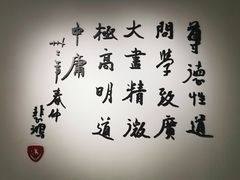 尊德性道
問學致廣
大盡精微
極高明道
中庸
二年春仲
悲鴻